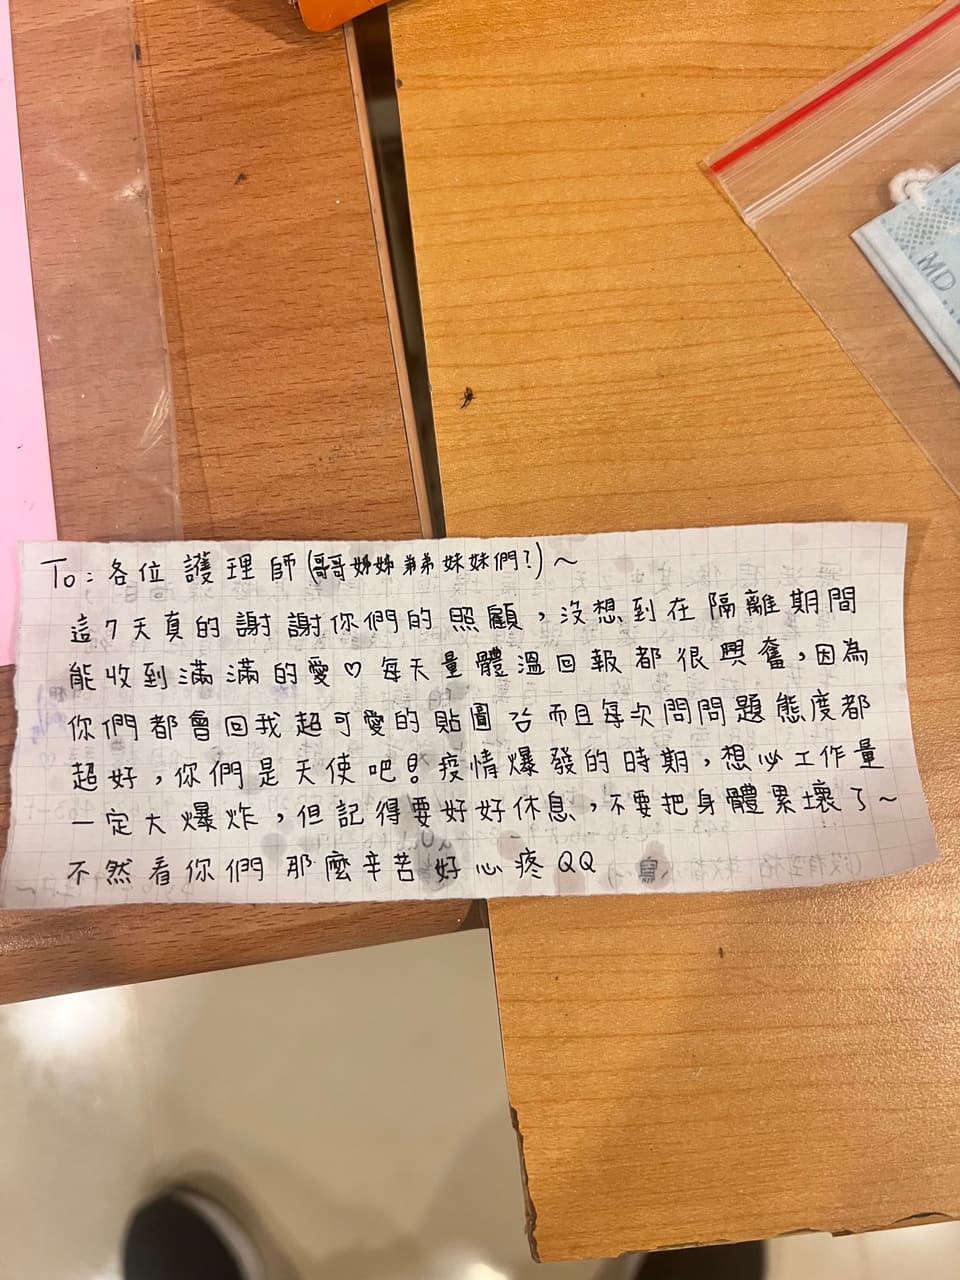 To：各位護理師(哥哥姊姊弟弟妹妹們?)～
這7天真的謝謝你們的照顧，沒想到在隔離期間
能收到滿滿的愛♡每天量體溫回報都很興奮，因為
你們都會回我超可愛的貼圖 而且每次問問題態度都
超好，你們是天使吧!疫情爆發的時期，想必工作量
一定大爆炸，但記得要好好休息，不要把身體累壞了～
不然看你們那麼辛苦好心疼QQ
MD